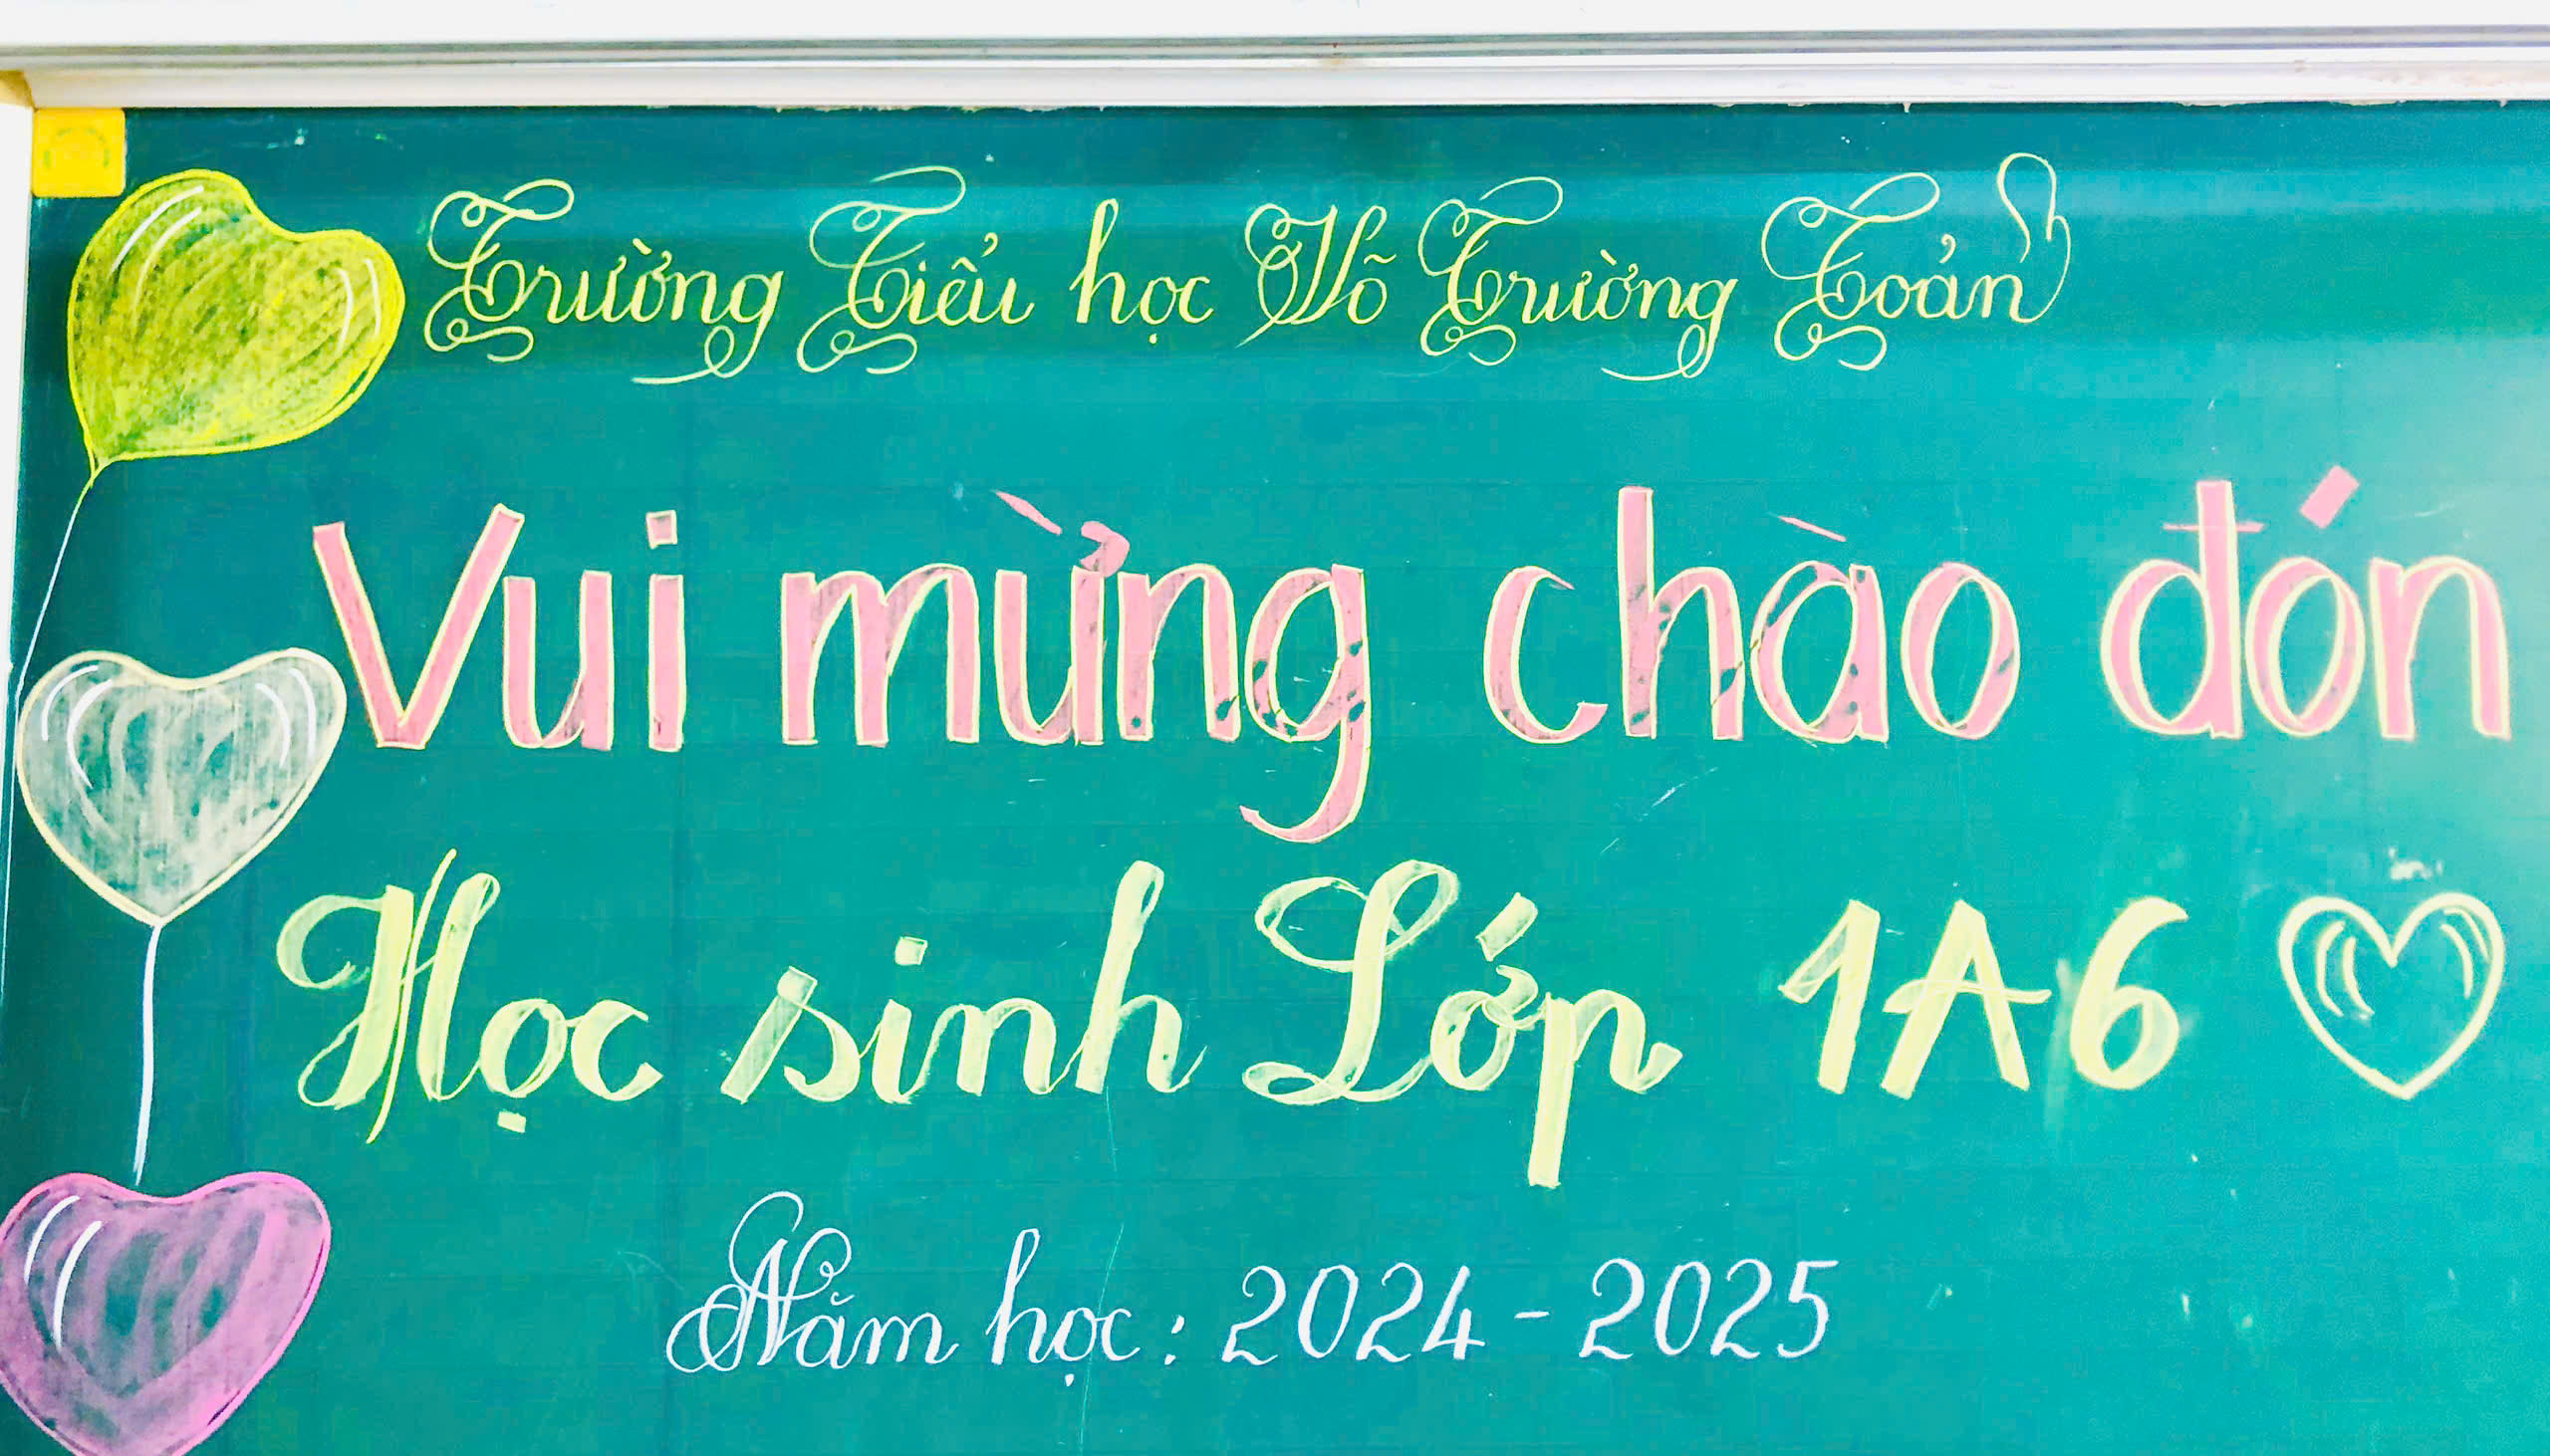 Trường Tiểu học Võ Trường Toản
Vui mừng chào đón
Học sinh Lớp 1A6
Năm học: 2024-2025